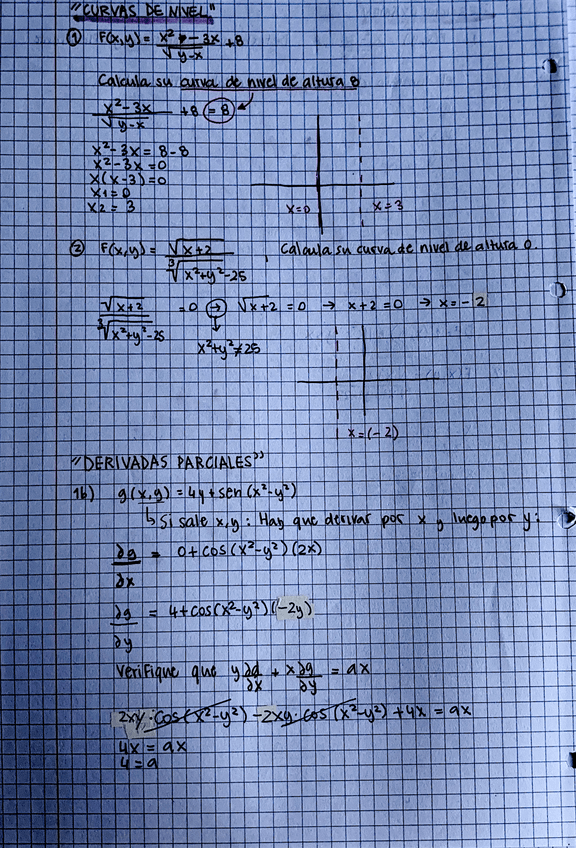 "CURVAS DE NIVEL"
① F(x,y) = x² - 3x / √y-x +8
Calcula su curva de nivel de altura 8
x²-3x / √y-x +8 = 8
x²-3x = 8-8
x²-3x = 0
x(x-3)=0
x1 = 0
x2 = 3
x=0 x=3
② F(x,y) = √x+2 / ∛x²+y²-25 , Calcula su curva de nivel de altura 0.
√x+2 / ∛x²+y²-25 = 0 → √x+2 = 0 → x+2=0 → x=-2
x²+y²≠25
x=(-2)
"DERIVADAS PARCIALES"
1b) g(x,y) = 4y+sen(x²-y²)
↳ Si sale x,y: Hay que derivar por x y luego por y:
∂g/∂x = 0+cos(x²-y²)(2x)
∂g/∂y = 4+cos(x²-y²)(-2y)
Verifique que y ∂g/∂x + x ∂g/∂y = ax
2xy·cos(x²-y²) -2xy·cos(x²-y²) +4x = ax
4x = ax
4=a